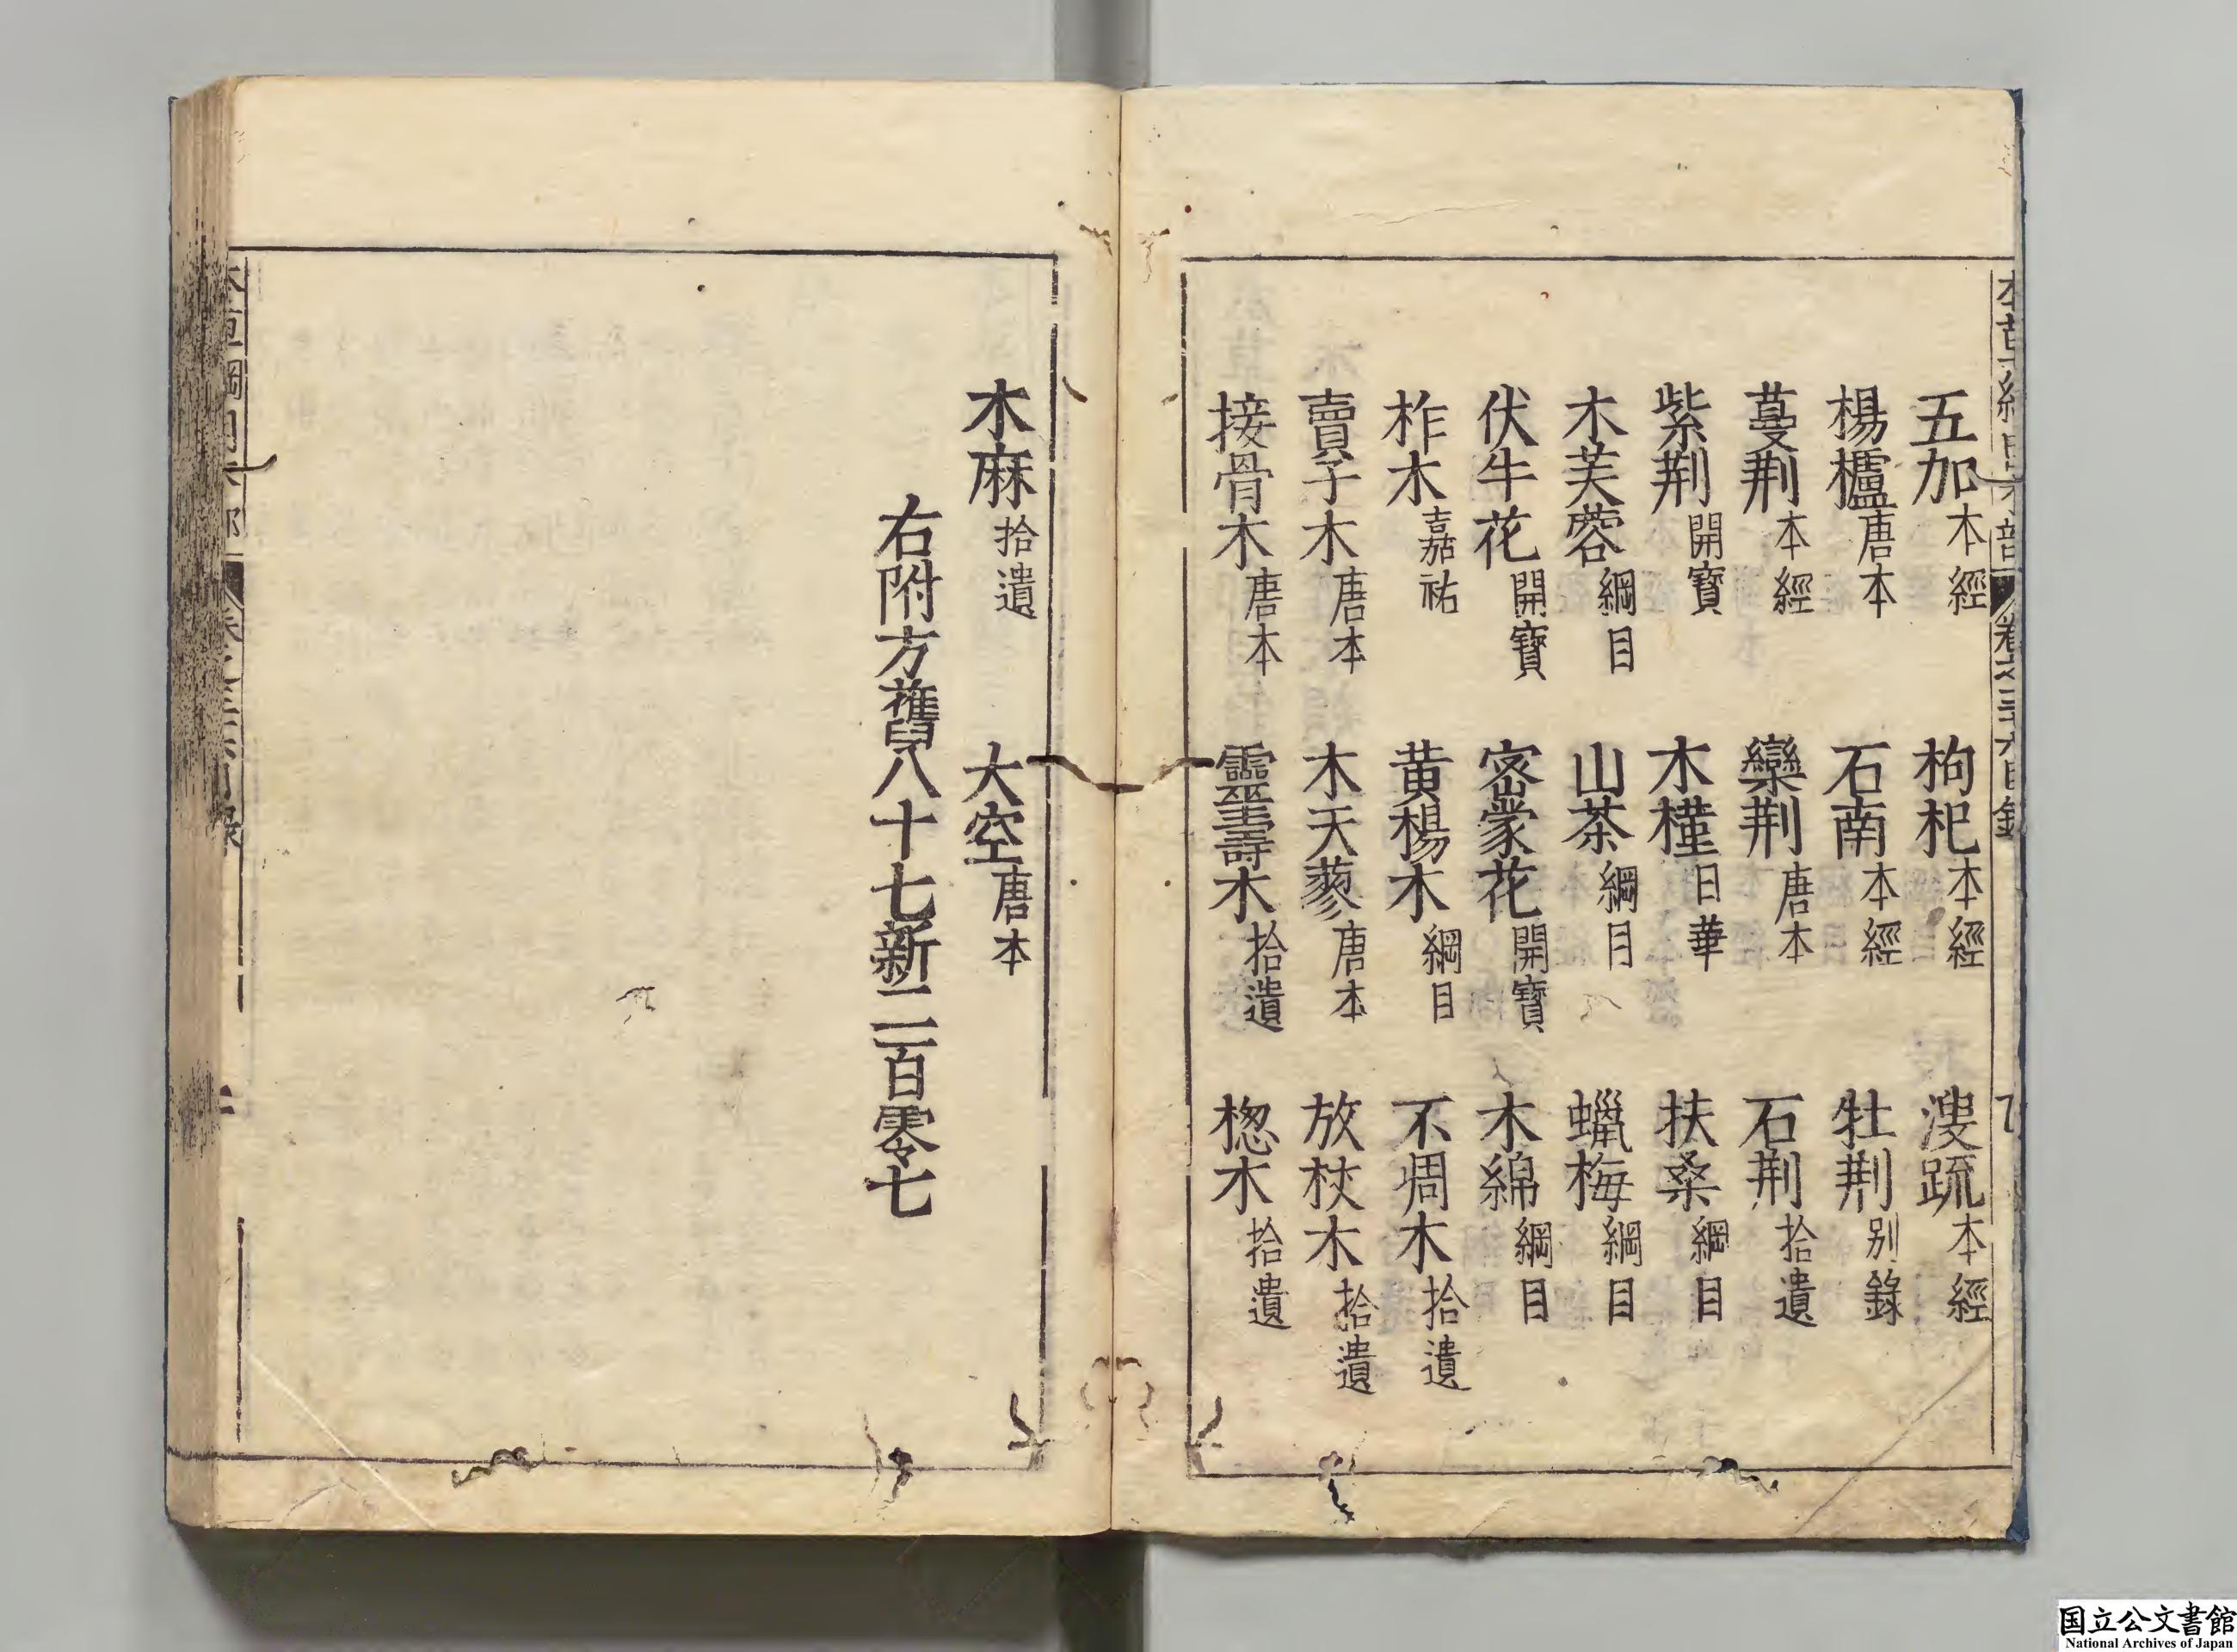 五加本經　枸杞本經　溲疏本經
楊櫨唐本　石南本經　牡荆别錄
蔓荆本經　欒荆唐本　石荆拾遺
紫荆開寶　木槿日華　扶桑綱目
木芙蓉綱目　山茶綱目　蠟梅綱目
伏牛花開寶　密蒙花開寶　木綿綱目
柞木嘉祐　黄楊木綱目　不凋木拾遺
賣子木唐本　木天蓼唐本　放杖木拾遺
接骨木唐本　靈壽木拾遺　楤木拾遺
木麻拾遺　大空唐本
右附方舊八十七新二百零七
国立公文書館
National Archives of Japan